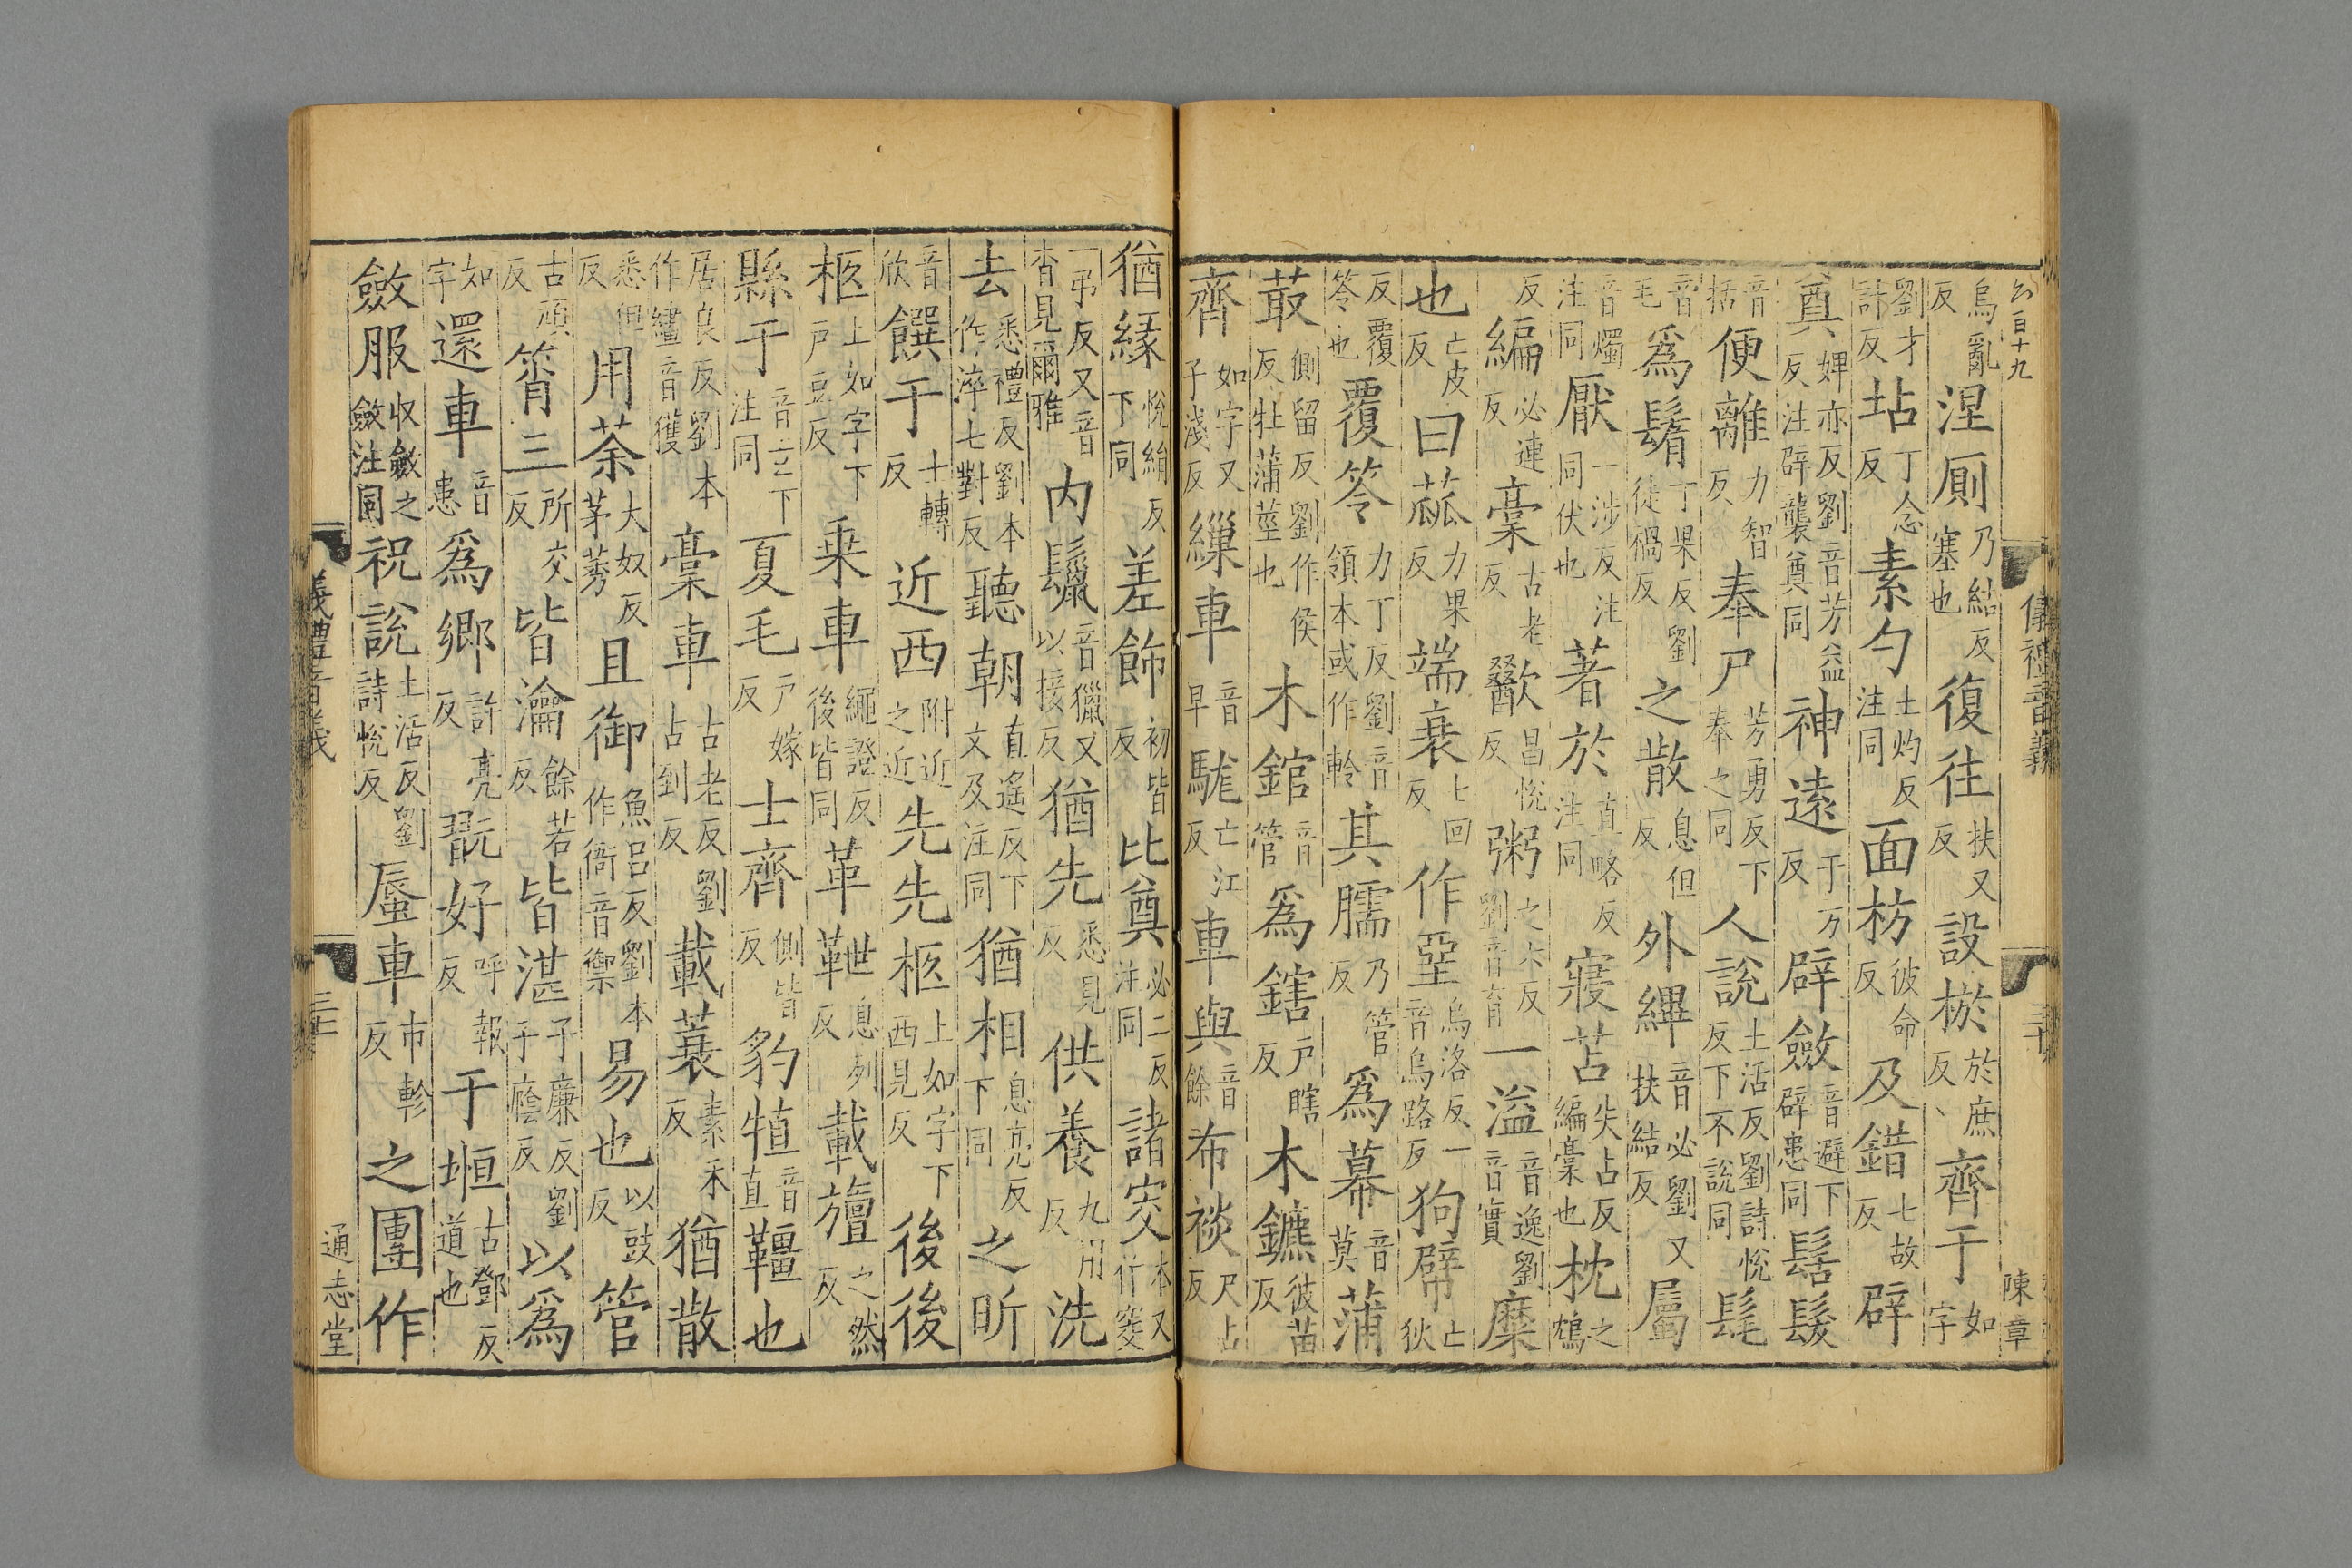 么百十九 儀禮音義 三十 陳章
烏亂反涅厠乃結反塞也復往扶又反設棜於庶反齊于如字
劉才計反坫丁念反素勺土灼反注同面枋彼命反及錯七故反辟
奠婢亦反劉音芳益反注辟襲奠同神遠于万反辟斂音避下辟患同髺髮
音括便離力智反奉尸芳勇反下奉之同人說土活反劉詩悅反下不說同髦
音毛爲鬌丁果反劉徒禍反之散息但反外縪音必劉又扶結反屬
音燭注同厭一涉反注同伏也著於直略反注同寢苫失占反編槀也枕之鴆
反編必連反槀古老反歠昌悅反粥之六反劉音育一溢音逸劉音實糜
亡皮反也曰蓏力果反端衰七回反作堊烏洛反一音烏路反狗幦亡狄
反覆笭也覆笭力丁反劉音領本或作軨其臑乃管反爲幕音莫蒲
菆側留反劉作侯反牡蒲莖也木錧音管爲鎋戶瞎反木鑣彼苗反
齊如字又子淺反繅車音早駹亡江反車與音餘布裧尺占反
猶緣悅絹反下同差飾初皆反比奠必二反注同諸窔本又作窔
一弔反又音杳見爾雅内鬣音獵又以接反猶先悉見反供養九用反洗
去悉禮反劉本作淬七對反聽朝直遙反下文及注同猶相息亮反下同之昕
音欣饌于士轉反近西附近之近先先柩上如字下西見反後後
柩上如字下戶豆反乘車繩證反後皆同革靾息列反載旜之然反
縣于音玄下注同夏毛戶嫁反士齊側皆反豹犆音直韁也
居良反劉本作繮音獲槀車古老反劉占到反載蓑素禾反猶散
悉但反用荼大奴反茅莠且御魚呂反劉本作衙音禦易也以豉反管
古頑反筲三所交反皆瀹餘若反皆湛子廉反劉子廕反以爲
如字還車音患爲鄉許亮反翫好呼報反于堩古鄧反道也
斂服收斂之斂注同祝說土活反劉詩悅反蜃車市軫反之團作
儀禮音義 三十 通志堂